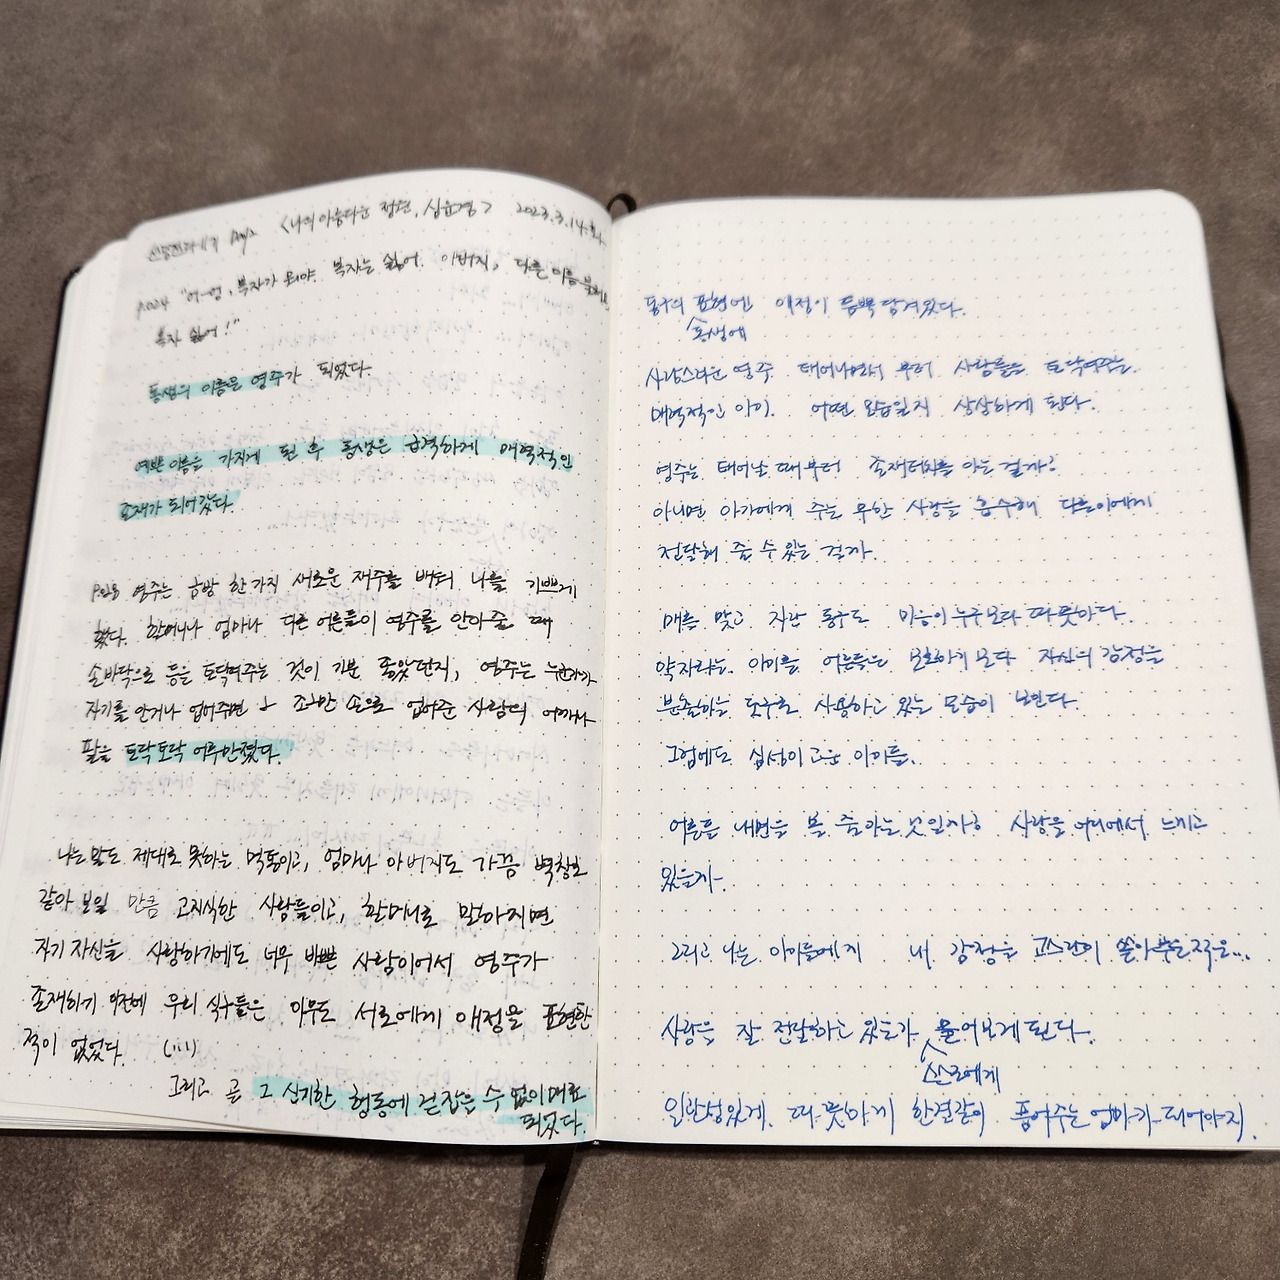 <나의 아름다운 정원, 심윤경> 2023.3.14.화.
p.024 "어-엉, 복자가 뭐야. 복자는 싫어. 아버지, 다른 이름
복자 싫어!"
동생의 이름은 영주가 되었다.
예쁜 이름을 가지게 된 후 동생은 급격하게 매력적인
존재가 되어갔다.
영주는 금방 한가지 새로운 재주를 배워 나를 기쁘게
했다. 할머니나 엄마나 다른 어른들이 영주를 안아줄 때
손바닥으로 등을 토닥여주는 것이 기분 좋았던지, 영주는 누군가가
자기를 안거나 업어주면 고 조그만 손으로 업어준 사람의 어깨나
팔을 토닥토닥 어루만졌다.
나는 말도 제대로 못하는 먹통이고, 엄마나 아버지도 가끔 벽창호
같아 보일 만큼 고지식한 사람들이고, 할머니로 말하자면
자기 자신을 사랑하기에도 너무 바쁜 사람이어서 영주가
존재하기 이전에 우리 식구들은 아무도 서로에게 애정을 표현한
적이 없었다. (...)
그리고 곧 그 신기한 행동에 걷잡을 수 없이 매료
되었다.
동구의 표현엔 애정이 듬뿍 담겨있다.
동생에
사랑스러운 영주 태어나면서 부터 사람들을 토닥여주는
매력적인 아이. 어떤 모습일지 상상하게 된다.
영주는 태어날 때부터 존재 를 아는 걸까?
아니면 아가에게 주는 무한 사랑을 흡수해 다른이에게
전달해 줄 수 있는 걸까.
매를 맞고 자란 동구도 마음이 누구보다 따뜻하다.
약자라는 아이를 어른들은 보호하기 보다 자신의 감정을
분출하는 도구로 사용하고 있는 모습이 보인다.
그럼에도 심성이 고운 아이들.
어른들 내면을 볼 줄 아는 것일까? 사랑을 어디에서 느끼고
있을까.
그리고 나는 아이들에게 내 감정을 고스란히 쏟아부은 적은...
사랑은 잘 전달하고 있는가 물어보게 된다.
스스로에게
일관성있게, 따뜻하게 한결같이 품어주는 엄마가 되어야지.